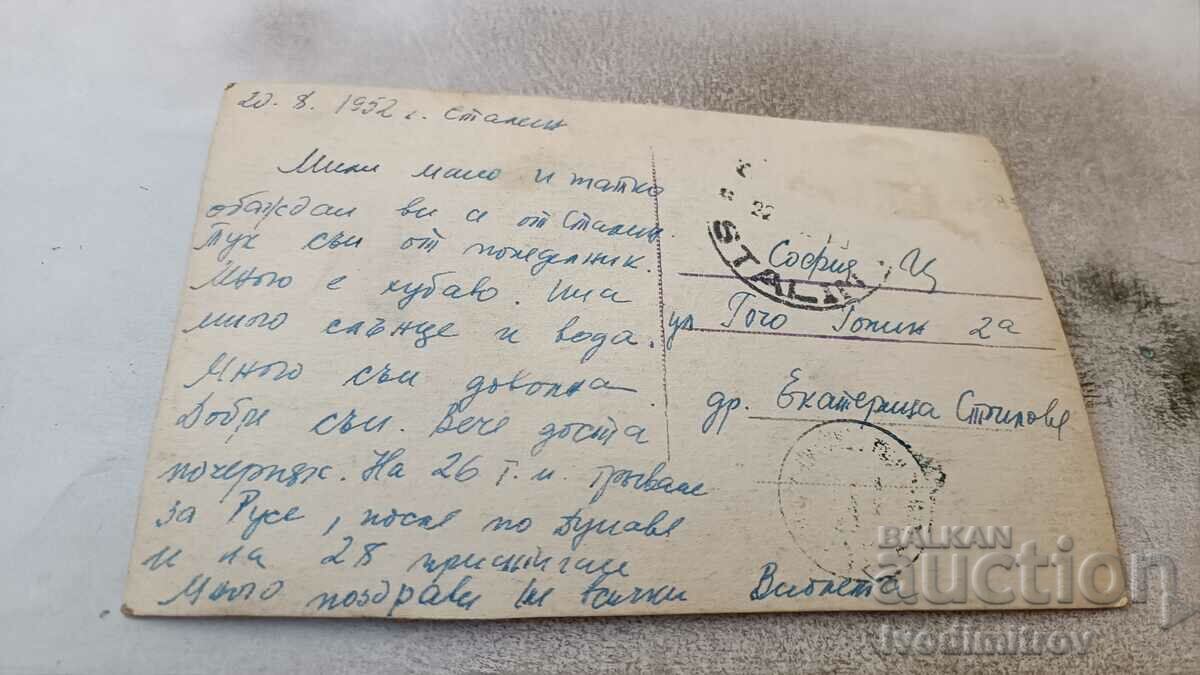 20. 8. 1952 г. Сталин
Мили мамо и татко
обаждам ви се от Сталин.
Тук съм от понеделник.
Много е хубаво. Има
много слънце и вода.
Много съм доволна.
Добре съм. Вече доста
почернях. На 26 т. м. тръгваме
за Русе, после по Дунава
и на 28 пристигам
Много поздрави на всички Виолета
STALIN
22
София Ц
ул Гочо Гопин 2а
др. Екатерина Стоилова
BALKAN
auction
ivodimitrov